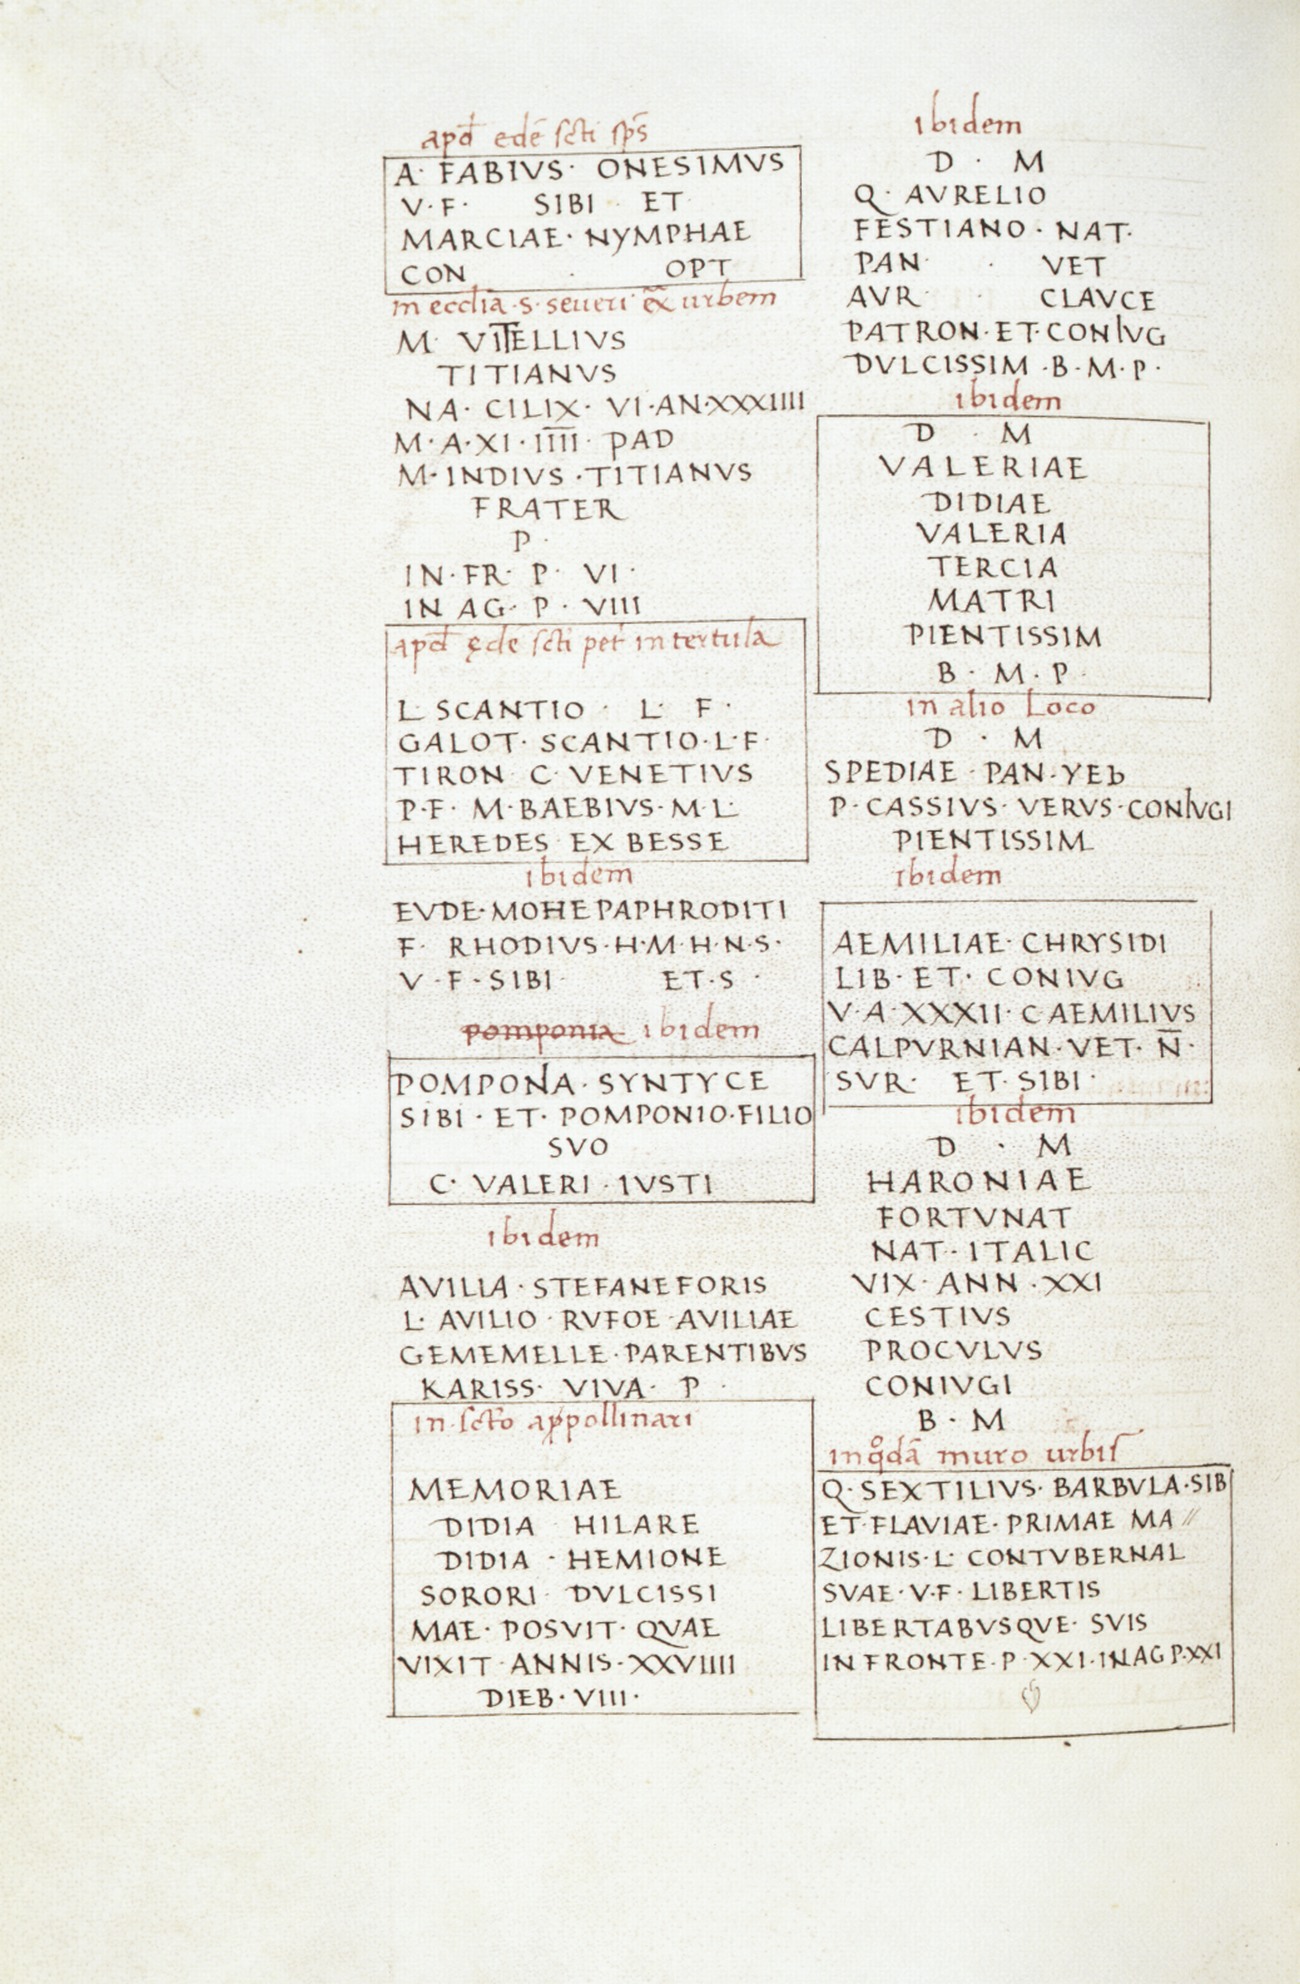 apđ edē scti sp̄s
A· FABIVS· ONESIMVS
V·F· SIBI ET
MARCIAE· NYMPHAE
CON · OPT
in ecclia ·s· seueri ex̄ urbem
M· VITTELLIVS
TITIANVS
NA· CILIX· VI·AN·XXXIIII
M·A·XI·I̅I̅I̅I̅· PAD
M·INDIVS·TITIANVS
FRATER
P·
IN·FR· P· VI·
IN AG· P· VIII
apđ ęde scti pet in tertula
L· SCANTIO · L· F·
GALOT· SCANTIO·L·F·
TIRON C· VENETIVS
P·F· M·BAEBIVS·M·L·
HEREDES EX BESSE
ibidem
EVDE·MOHEPAPHRODITI
F· RHODIVS·H·M·H·N·S·
V·F·SIBI· ET·S·
pomponia ibidem
POMPONA·SYNTYCE
SIBI·ET·POMPONIO·FILIO
SVO
C· VALERI·IVSTI
ibidem
AVILLA·STEFANEFORIS
L· AVILIO·RVFOE·AVILIAE
GEMEMELLE·PARENTIBVS
KARISS· VIVA· P·
in scto appollinari
MEMORIAE
DIDIA HILARE
DIDIA · HEMIONE
SORORI DVLCISSI
MAE·POSVIT·QVAE
VIXIT·ANNIS·XXVIIII
DIEB·VIII·
ibidem
D · M
Q· AVRELIO
FESTIANO·NAT·
PAN· · VET
AVR · CLAVCE
PATRON·ET·CONIVG
DVLCISSIM·B·M·P·
ibidem
D · M
VALERIAE
DIDIAE
VALERIA
TERCIA
MATRI
PIENTISSIM
B · M · P·
in alio Loco
D · M
SPEDIAE·PAN·YEb
P·CASSIVS·VERVS·CONIVGI
PIENTISSIM
ibidem
AEMILIAE·CHRYSIDI
LIB·ET·CONIVG
V·A·XXXII·C·AEMILIVS
CALPVRNIAN·VET·N̅·
SVR· ET·SIBI·
ibidem
D · M
HARONIAE
FORTVNAT
NAT·ITALIC
VIX·ANN·XXI
CESTIVS
PROCVLVS
CONIVGI
B · M
in qᵒdā muro urbis
Q·SEXTILIVS·BARBVLA·SIB
ET·FLAVIAE·PRIMAE MA //
ZIONIS·L·CONTVBERNAL
SVAE·V·F·LIBERTIS
LIBERTABVSQVE·SVIS
IN FRONTE·P·XXI·INAG P·XXI